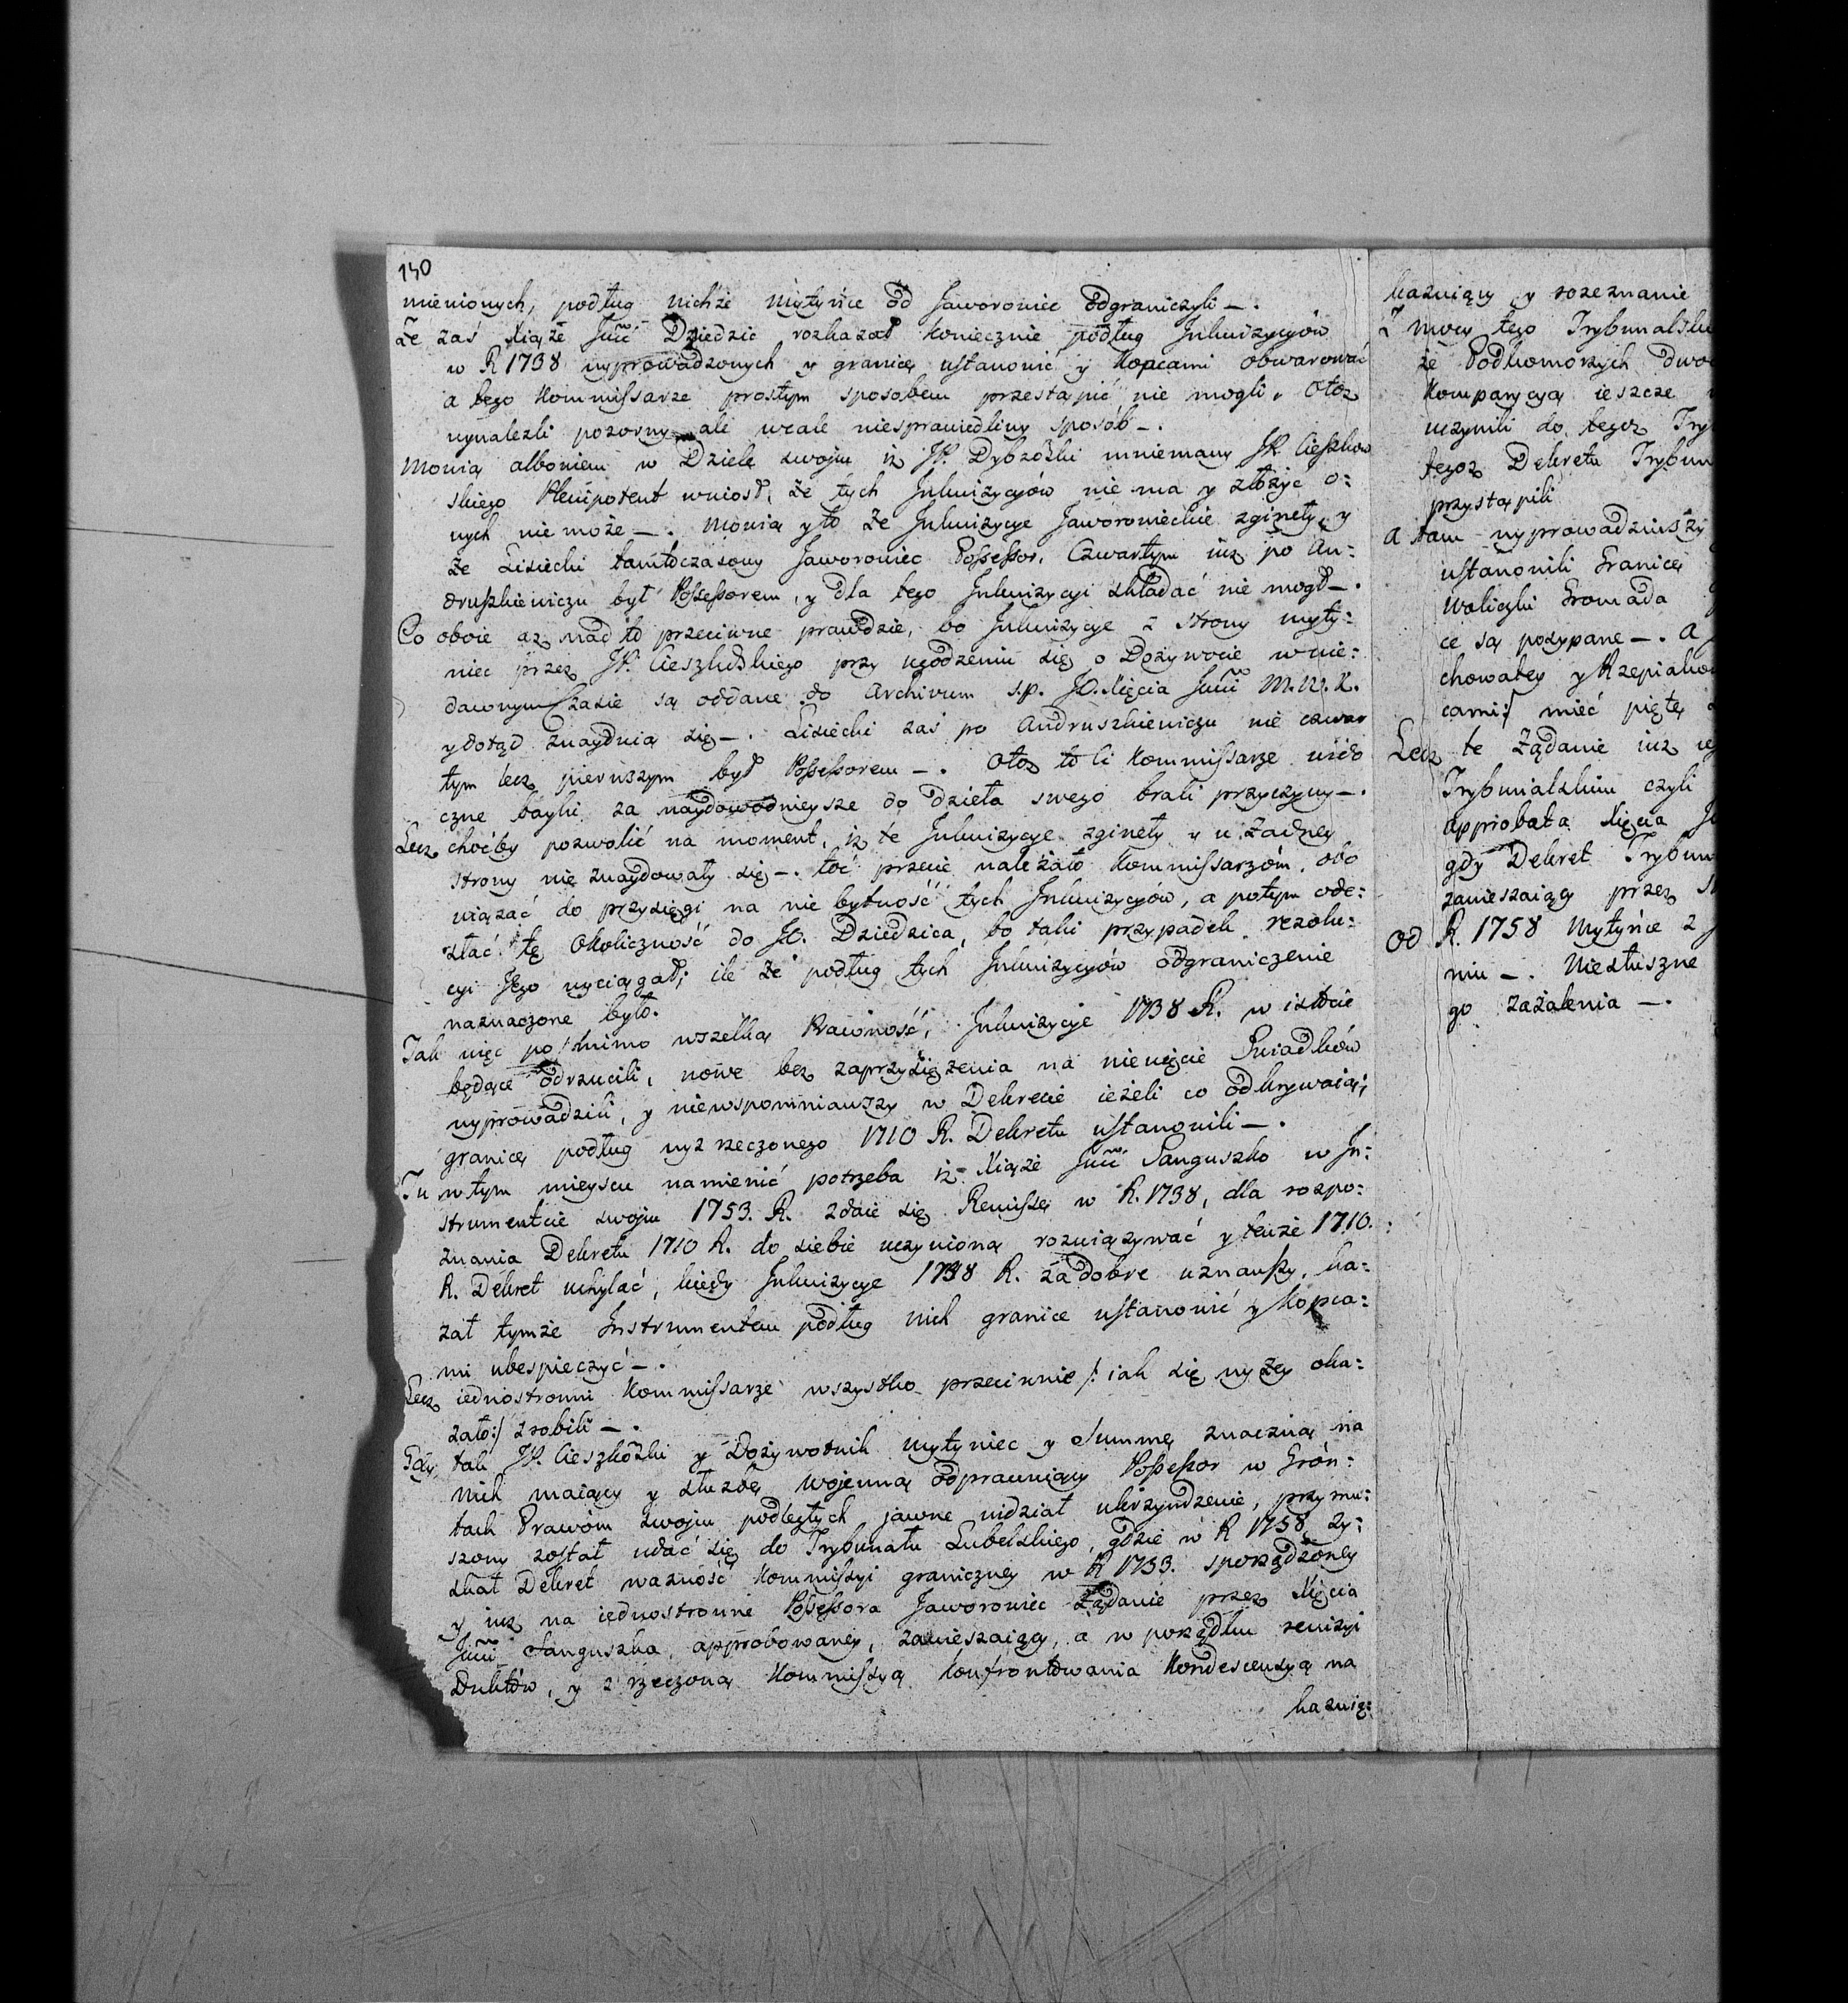 140
mienionych, podług nichże Mytyńce od Jaworowiec odgraniczyli —.
Że zaś Xiąże Jmć Dziedzic rozkazał koniecznie podług Inkwizycyów
w R 1738 wyprowadzonych y granicę ustanowić y Kopcami obwarować
a tego Kommissarze prostym sposobem przestąpić nie mogli, otoż
wynalezli pozorny ale wcale niesprawiedliwy sposób —.
Mowią albowiem w Dziele swoim iż JP. Dybzoski mniemany JP. Cieszkow
skiego Plenipotent wniosł, że tych Inkwizycyów nie ma y złożyc o:
nych nie może —. Mowią y to że Inkwizycye Jaworowieckie zginęły, y
że Lisiecki tamtoczasowy Jaworowiec Possessor, Czwartym iuż po An:
druszkiewiczu był Possessorem, y dla tego Inkwizycyi składać nie mogł —.
Co oboie aż nad to przeciwne prawdzie, bo Inkwizycye z strony Myty:
niec przez JP. Cieszkoskiego przy ugodzeniu się o Dożywocie w nie:
dawnym Czasie są oddane do Archivum s.p. JO. Xięcia Jmći M.W.K.
y dotąd znaydują się —. Lisiecki zaś po Andruszkiewiczu nie czwar
tym lecz pierwszym był Possessorem —. Otoż to ci Kommissarze wido
czne bayki za naydowodnieysze do dzieła swego brali przyczyny —.
Lecz choćby pozwolić na moment, iż te Inkwizycye zginęły y u żadney
strony nie znaydowały się —. toć przecie należało Kommissarzóm obo
wiązać do przysięgi na nie bytność tych Inkwizycyów, a potym ode:
słać tę Okoliczność do JO. Dziedzica, bo taki przypadek rezolu:
cyi Jego wyciągał; ile że podług tych Inkwizycyów odgraniczenie
naznaczone było.
Tak więc po mimo wszelką Prawność, Inkwizycye 1738 R. w istocie
będące odrzucili, nowe bez zaprzysiężenia na niewięcie Swiadków
wyprowadzili, y niewspomniawszy w Dekrecie ieżeli co odkrywaią;
granicę podług wyż rzeczonego 1710 R. Dekretu ustanowili —.
Tu w tym mieyscu namienić potrzeba iż Xiąże Jmć Sanguszko w In:
strumentcie swoim 1753. R. zdaie się Remissę w R. 1738, dla rozpo:
znania Dekretu 1710 R. do siebie uczynioną rozwiązywać y tenże 1710.
R. Dekret uchylać, kiedy Inkwizycye 1738 R. za dobre uznawszy, ka:
zał tymże Instrumentem podług nich granice ustanowić y Kopca:
mi ubespieczyć —.
Lecz iednostronni Kommissarze wszystko przeciwnie /: iak się wyżey oka:
zało :/ zrobili —.
Gdy tak JP. Cieszkoski y Dożywotnik Mytyniec y Summę znaczną na
nich maiący y służbę Wojenną odprawuiący Possessor w Grón:
tach Prawóm swoim podległych jawne widział ukrzywdzenie, przymu:
szony został udać się do Trybunału Lubelskiego, gdzie w R 1758 zy:
skał Dekret ważność Kommissyi graniczney w R 1753. sporządzoney
y iuż na iednostronne Possessora Jaworowiec Żądanie przez Xięcia
Jmći Sanguszka approbowaney, zawieszaiący, a w porządku rewizyi
Duktów, y z rzeczoną Kommissyą konfrontowania Kondescensyą na
kazuią:
kazuiący y rozeznanie
Z mocy tego Trybunalsk
że Podkomorzych dwo
Komparycyą ieszcze
uczynili do tegoż Try
tegoż Dekretu Trybun
przystąpili
a tam wyprowadziwszy
ustanowili Granicę
Woliczki Gromada
ce są posypane —. a
chowatey y Rzepiako
cami :/ mieć piętę
Lecz te Żądanie iuż
Trybunalskim czyli
approbata Xięcia
gdy Dekret Trybun
zawieszaiący przez
Od R. 1758 Mytyńce z
niu —. Niesłuszne
go zażalenia —.